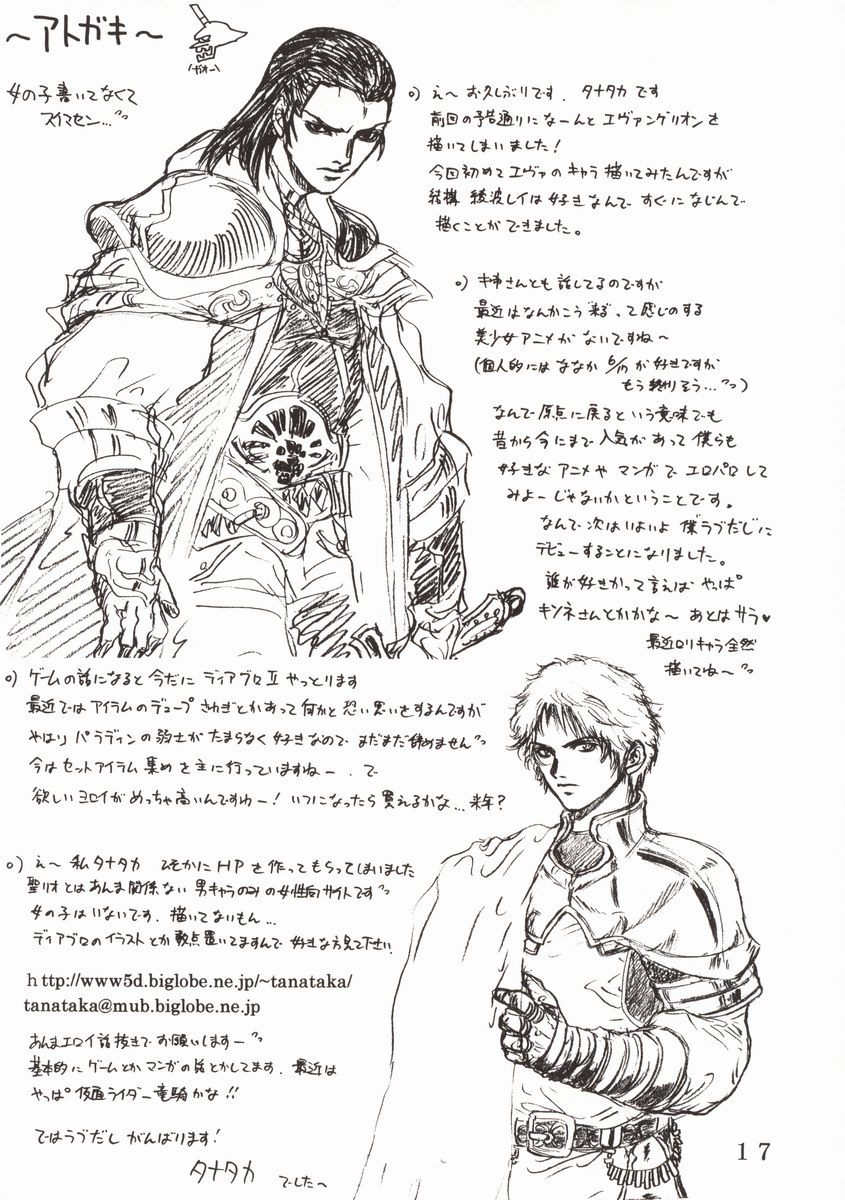 ～アトガキ～
(ガオー)
女の子書いてなくて
スイマセン…
○) え～ お久しぶりです. タナタカ です
前回の予告通りに なーんと エヴァンゲリオン を
描いてしまいました!
今回初めて エヴァの キャラ 描いてみたんですが
結構 綾波レイは 好き なんで すぐに なじんで
描くことが できました。
○) 姉さんとも 話してるのですが
最近はなんかこう"来る"って感じのする
美少女アニメが ないですね～
(個人的には ななか 6/17 が 好きですが
もう終りそう…)
なんで 原点に戻る という意味でも
昔から今にまで 人気が あって 僕らも
好きな アニメや マンガで エロパロ して
みよーじゃないか ということです。
なんで次はいよいよ 僕"ラブだし"に
デビューすることに なりました。
誰が好きかって言えば やっぱ
キツネさんとかかな～ あとは サラ♥
最近ロリキャラ全然
描いてね～
○) ゲームの話になると 今だに ディアブロⅡ やっとります
最近では アイテムのデュープ さわぎとかあって 何かと 恐い思いをするんですが
やはり パラディンの騎士が たまらなく 好きなので まだまだ 諦めません
今は セットアイテム 集め を主に 行っていますねー. で
欲しい ヨロイが めっちゃ高いんですわー! いつになったら 買えるかな… 来年?
○) え～ 私 タナタカ ひそかに HP を 作って もらって しまいました
聖リオ とは あんま 関係 ない 男キャラのみ の 女性向サイト です
女の子は いないです. 描いてないもん…
ディアブロの イラストとか 数点 置いてますんで 好きな方見て下さい.
http://www5d.biglobe.ne.jp/~tanataka/
tanataka@mub.biglobe.ne.jp
あんまエロイ話 抜きで お願いしますー
基本的に ゲームとか マンガの 話とかしてます. 最近は
やっぱ 仮面ライダー 竜騎かな!!
ではラブだし がんばります!
タナタカ でした～
17